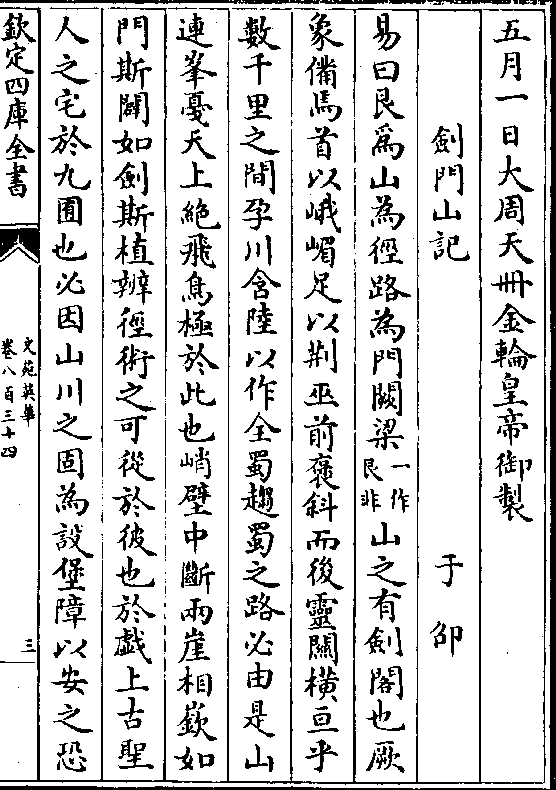 五月一日大周天冊金輪皇帝御製
劍門山記　于邵
易曰艮爲山為徑路為門闕梁一作艮非山之有劍閣也厥
象備焉首以峨嵋足以荆巫前褒斜而後靈關橫亘乎
數千里之間孕川含陸以作全蜀趨蜀之路必由是山
連峯戞天上絶飛鳥極於此也峭壁中斷兩崖相嶔如
門斯闢如劍斯植辨徑術之可從於彼也於戯上古聖
人之宅於九囿也必因山川之固為設堡障以安之恐
欽定四庫全書
文苑英華
卷八百三十四
三